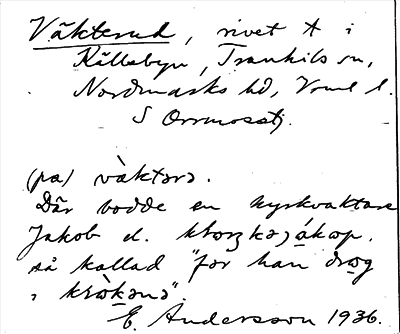 Väkterud, rivet t i
Källebyn, Trankils sn,
Nordmarks hd, Vrml l.
S Orrmossetj.
(pa) vàktərə.
Där bodde en kyrkvaktare
Jakob el.
så kallad "for han drog
i krokana".
E. Andersson 1936.